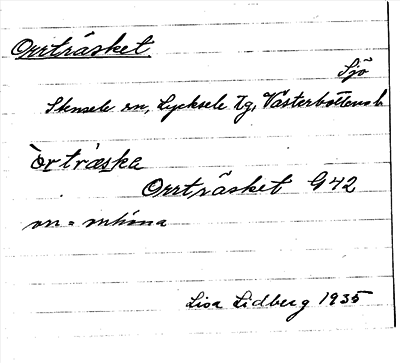 Orrträsket
Sjö
Stensele sn, Lycksele tg, Västerbottens l
òrtræska
Orrträsket G42
on = mhöna
Lisa Lidberg 1935